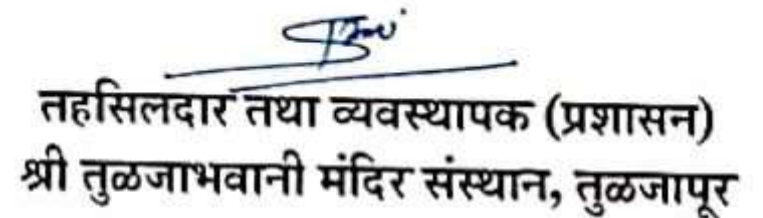 तहसिलदार तथा व्यवस्थापक (प्रशासन)
श्री तुळजाभवानी मंदिर संस्थान, तुळजापूर